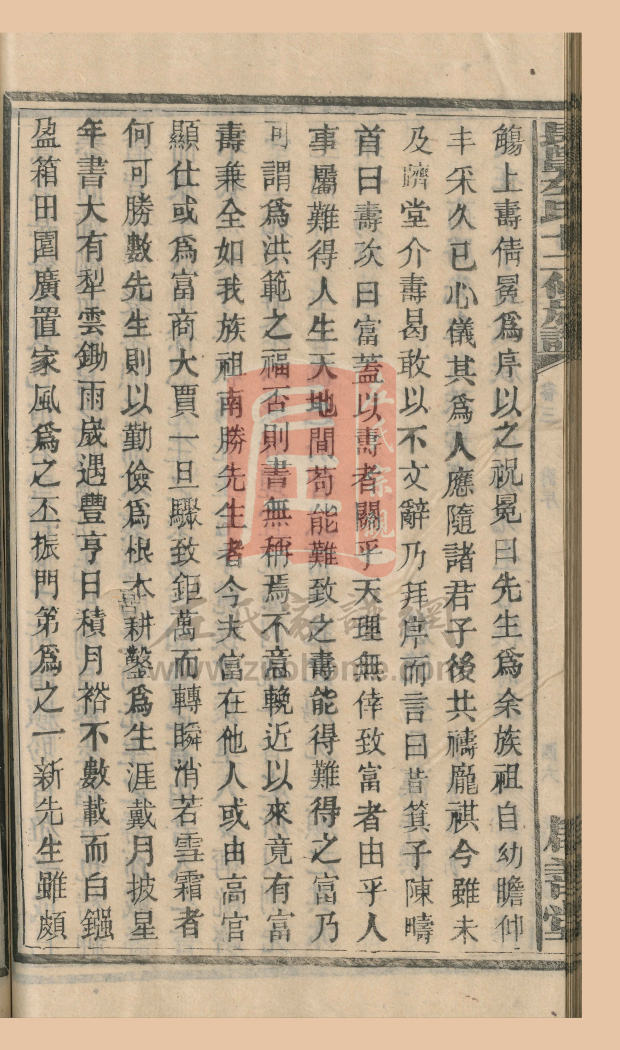 觴上壽倩冕爲序以之祝冕曰先生爲余族祖自幼瞻仰
丰采久已心儀其爲人應隨諸君子後共禱龐祺今雖未
及躋堂介壽曷敢以不文辭乃拜序而言曰昔箕子陳疇
首曰壽次曰富蓋以壽者關乎天理無倖致富者由乎人
事屬難得人生天地間苟能難致之壽能得難得之富乃
可謂爲洪範之福否則書無稱焉不意輓近以來竟有富
壽兼全如我族祖南勝先生者今夫富在他人或由高官
顯仕或爲富商大賈一旦驟致鉅萬而轉瞬消若雪霜者
何可勝數先生則以勤儉爲根本耕鑿爲生涯戴月披星
年書大有犁雲鋤雨歲遇豐亨日積月裕不數載而白鏹
盈箱田園廣置家風爲之丕振門第爲之一新先生雖頗
左氏家譜網
www.zuohome.com